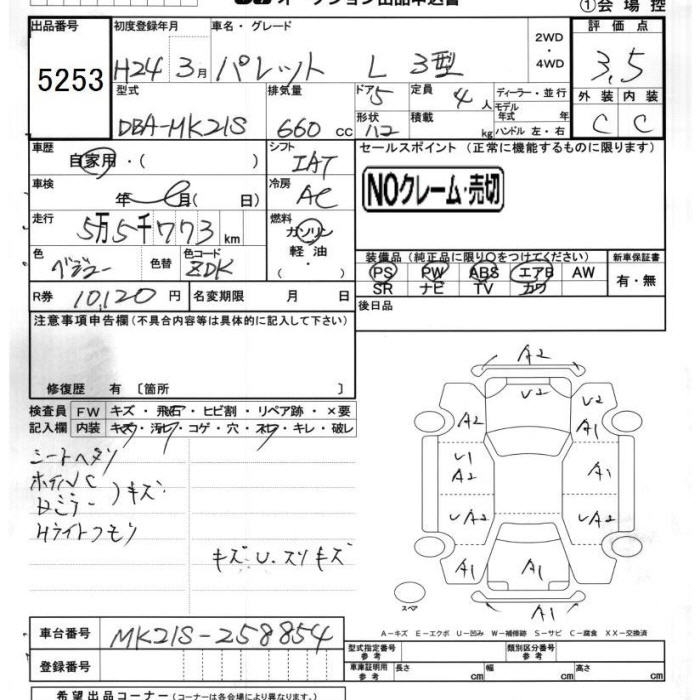 オークション出品申込書
①会場控
出品番号 初度登録年月 車名・グレード 2WD・4WD 評価点
5253 H24 3月 パレット L 3型 3.5
型式 排気量 ドア 5 定員 4人 ディーラー・並行 外装 内装
DBA-MK21S 660cc 形状 積載 kg モデル年式 年 C C
ハンドル 左・右
車歴 シフト セールスポイント (正常に機能するものに限ります)
自家用・( ) IAT
車検 冷房 NOクレーム・売切
年 月( 日) AC
走行 燃料
5万5千773km ガソリン・軽油・( )
色 色替 色コード 装備品 (純正品に限り○をつけてください) 新車保証書
ベージュ ZDK PS PW ABS エアB AW 有・無
SR ナビ TV カワ
R券 10,120円 名変期限 月 日 後日品
注意事項申告欄 (不具合内容等は具体的に記入して下さい)
修復歴 有 〔箇所 〕
検査員 FW キズ・飛石・ヒビ割・リペア跡・×要
記入欄 内装 キズ・汚れ・コゲ・穴・スレ・キレ・破レ
シートヘタリ
ホイールC
Dミラー )キズ
Hライトクモリ
キズ U. スリキズ
A2
V2
U2
A2
A1
U1
A2
A1
UA2
UA2
A1
A1
A1
A1
スペア
A−キズ E−エクボ U−凹み W−補修跡 S−サビ C−腐食 XX−交換済
車台番号 MK21S-258854
登録番号
型式指定番号 参考 類別区分番号 参考
車庫証明用 参考 長さ cm 幅 cm 高さ cm
希望出品コーナー (コーナーは各会場により異なります。)